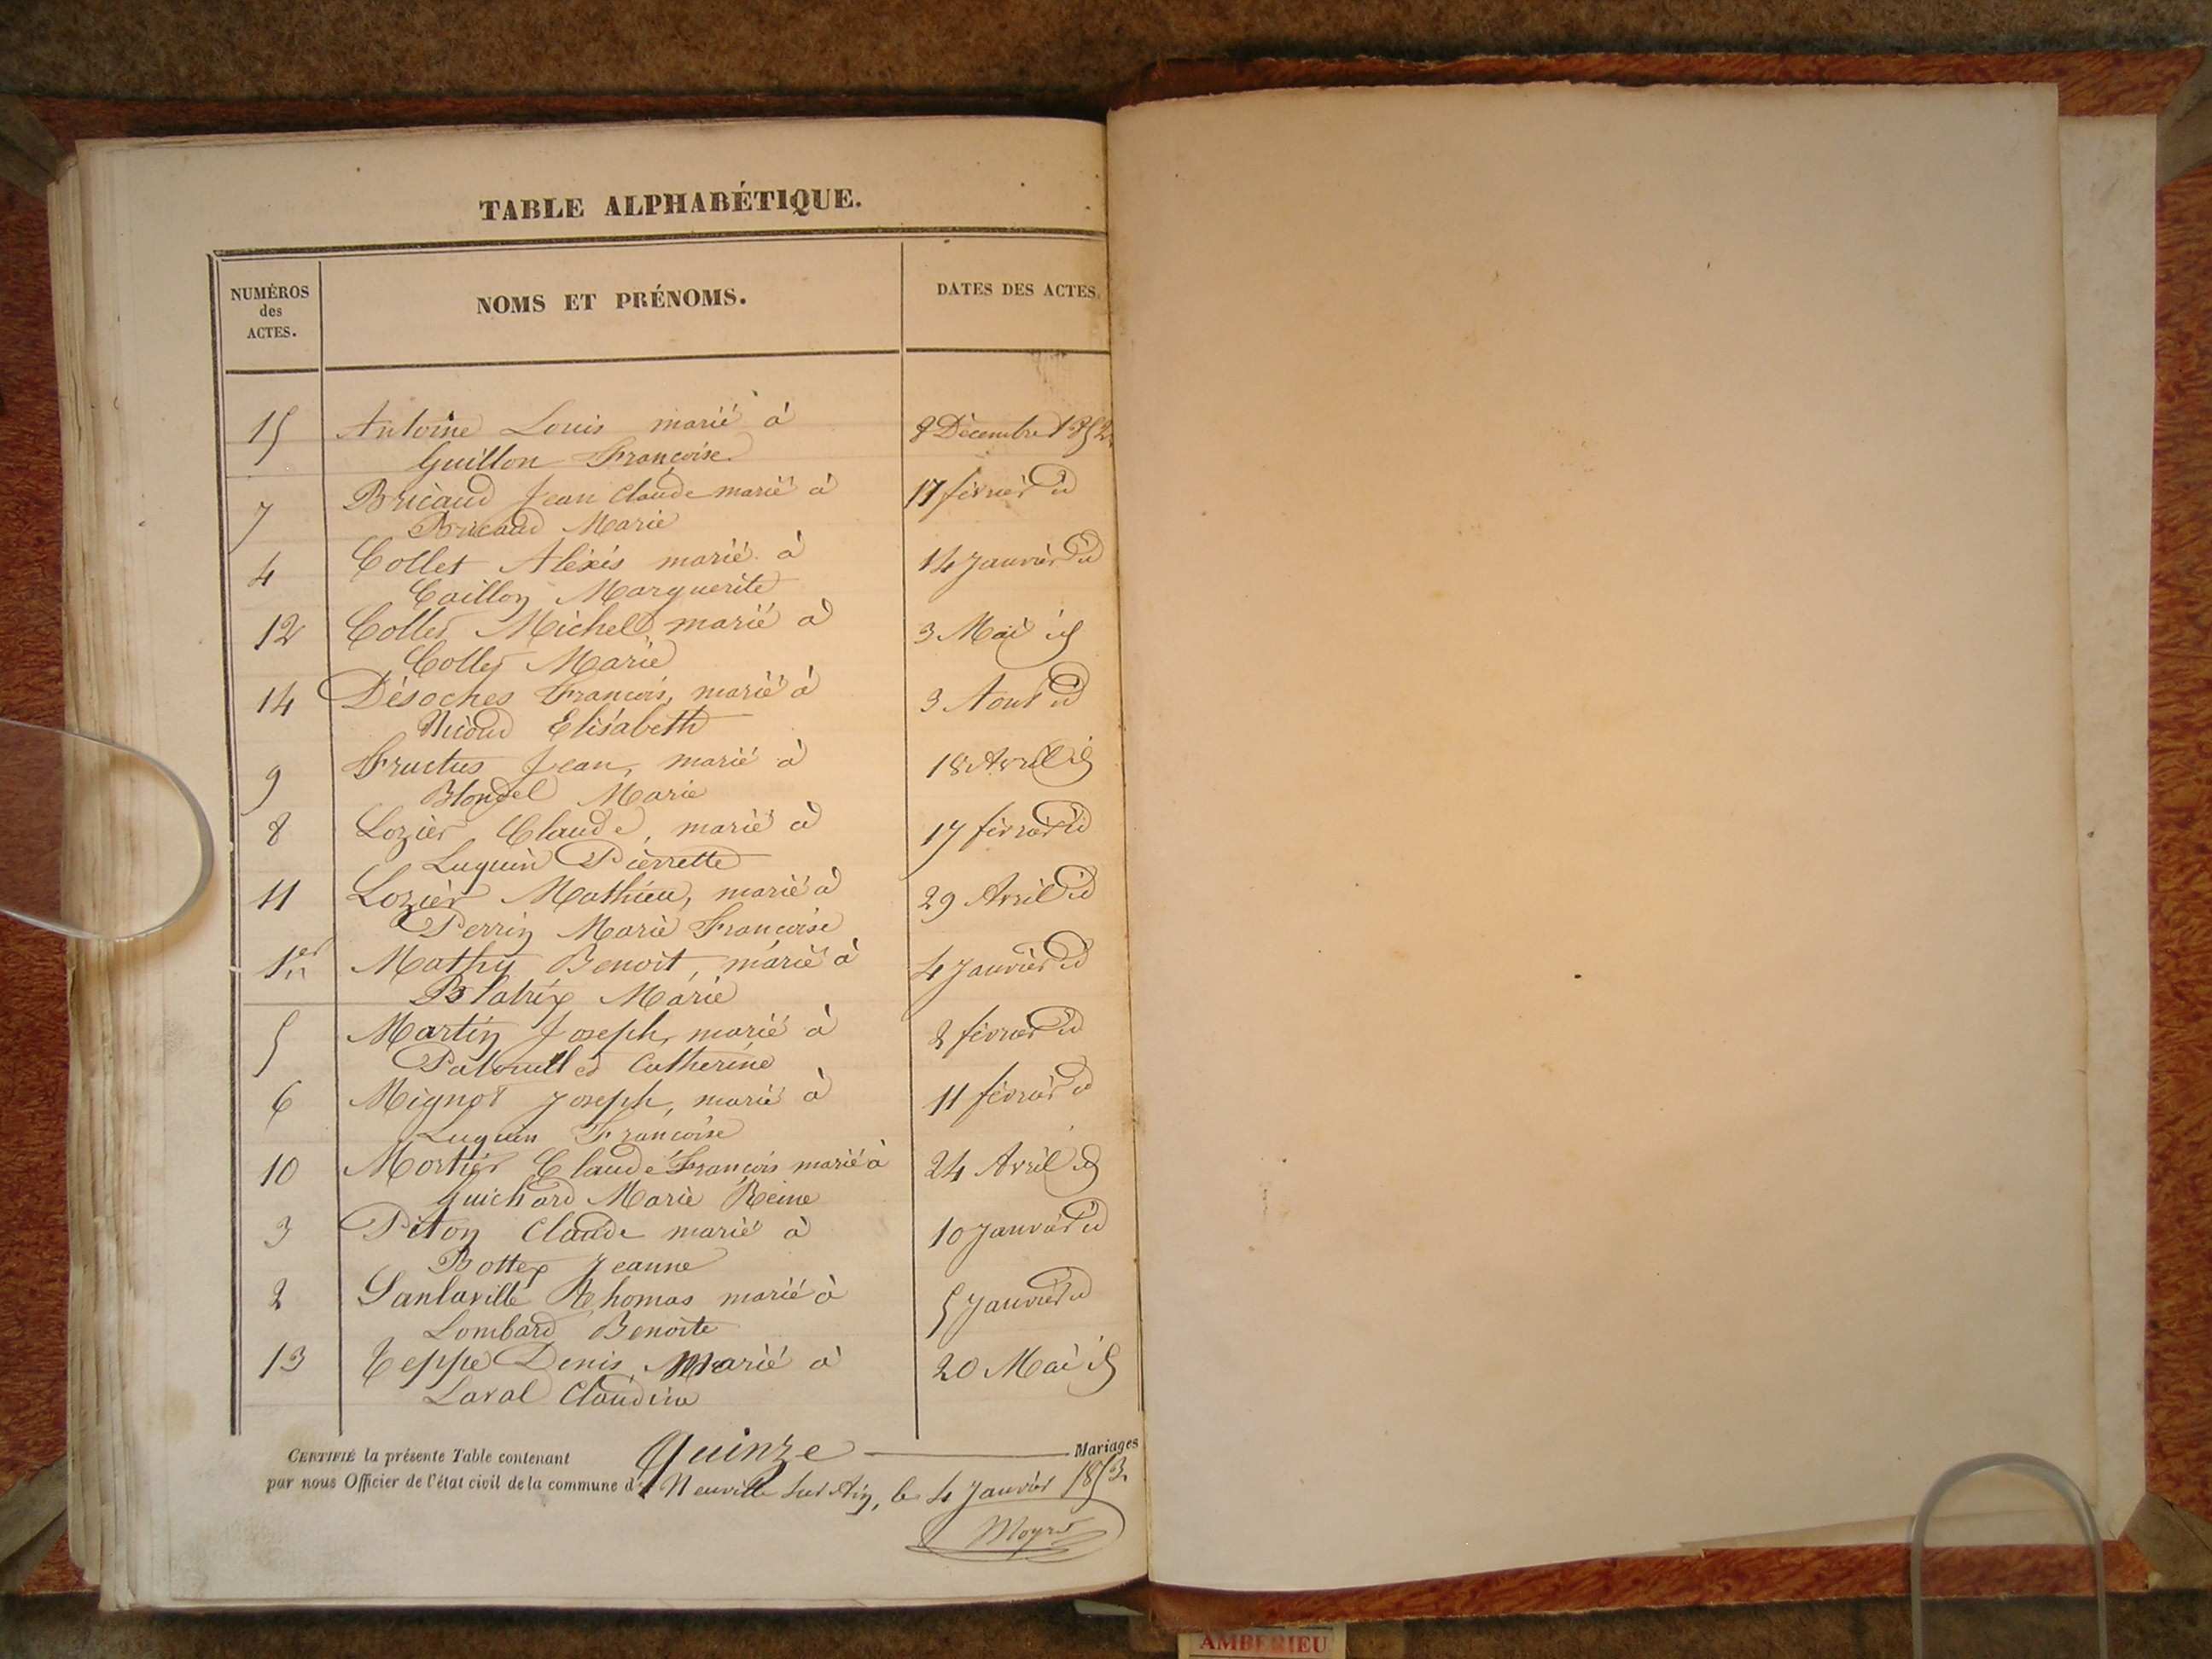 TABLE ALPHABÉTIQUE.
NUMÉROS des ACTES.
NOMS ET PRÉNOMS.
DATES DES ACTES.
15 Antoine Louis marié à 8 Décembre 1852
Guillon Françoise
7 Bricaud Jean Claude marié à 17 février id
Bricaud Marie
4 Collet Aléxis marié à 14 Janvier id
Caillon Marguerite
12 Collet Michel marié à 3 Mai id
Collet Marie
14 Désoches François, marié à 3 Aout id
Nicoud Elisabeth
9 Fructus Jean, marié à 18 Avril id
Blondel Marie
8 Lozier Claude, marié à 17 février id
Luquin Pierrette
11 Lozier Mathieu, marié à 29 Avril id
Perrin Marie Françoise
1er Mathy Benoit, marié à 4 Janvier id
Blatrix Marie
5 Martin Joseph, marié à 2 février id
Catherine
6 Mignot Joseph, marié à 11 février id
Luquin Françoise
10 Mortier Claude François marié à 24 Avril id
Guichard Marie Reine
3 Piton Claude marié à 10 Janvier id
Bottex Jeanne
2 Sanlaville Thomas marié à 5 Janvier id
Lombard Benoite
13 Teppe Denis, Marié à 20 Mai id
Laval Claudine
CERTIFIÉ la présente Table contenant Quinze Mariages
par nous Officier de l'état civil de la commune de Neuville sur Ain, le 4 Janvier 1853.
AMBERIEU